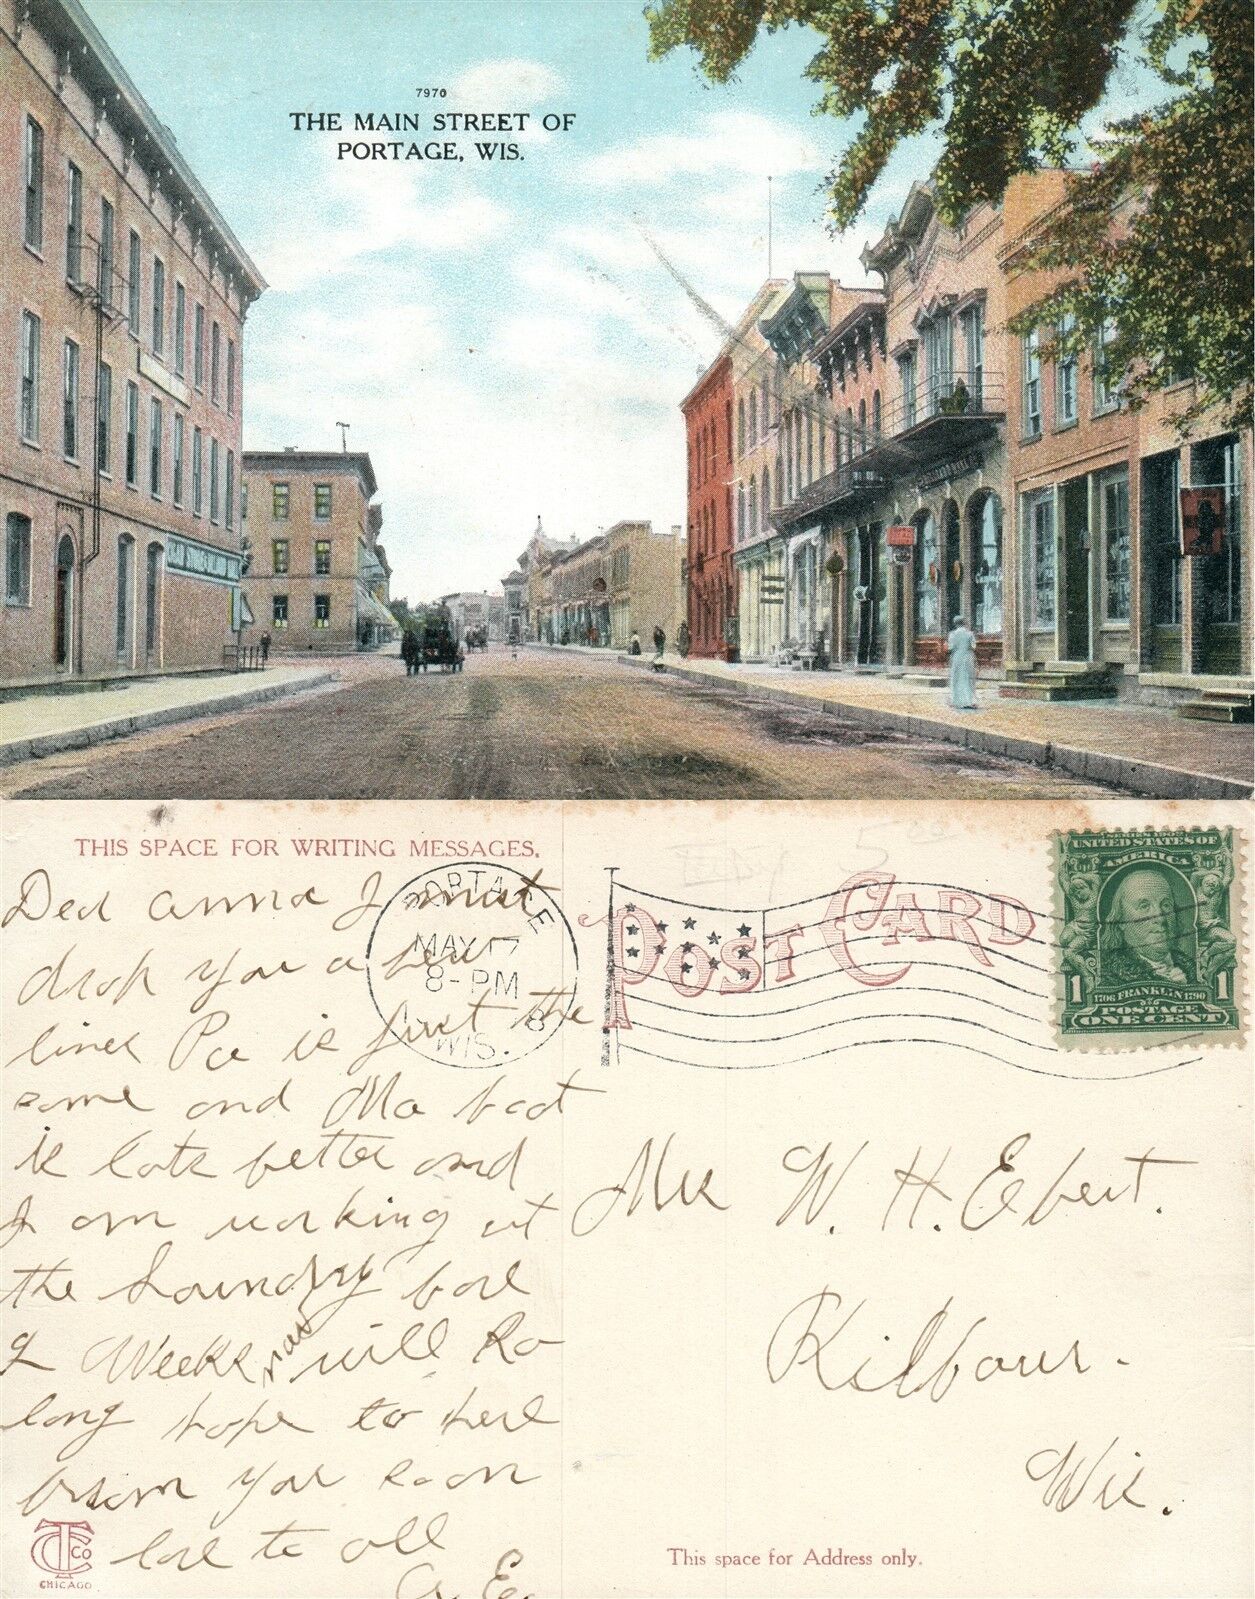 7970
THE MAIN STREET OF
PORTAGE, WIS.
THIS SPACE FOR WRITING MESSAGES.
Dea anna I must
drop you a few
lines Pa is just the
same and Ma foot
is lots better and
I am working at
the Laundry
2 Weeks now will So
long hope to here
from you soon
love to all
PORTAGE
MAY 17
8-PM
WIS.
POST CARD
SERIES 1902
UNITED STATES OF
AMERICA
1 1706 FRANKLIN 1790 1
POSTAGE
ONE CENT
Mrs W. H. Ebert.
Kilbourn.
Wis.
CTCo
CHICAGO
This space for Address only.